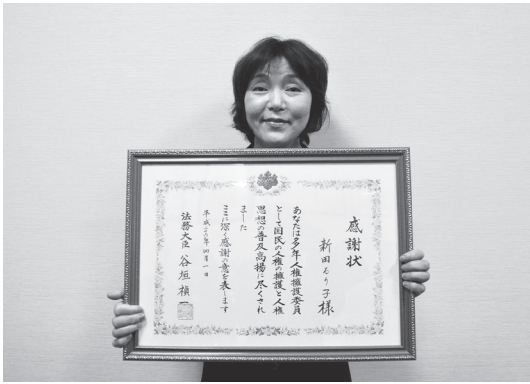 感謝状
新田もり子様
あなたは多年人権擁護委員
として国民の人権の擁護と人権
思想の普及高揚に尽くされ
ました
ここに深く感謝の意を表します
平成二六年四月一日
法務大臣 谷垣禎一